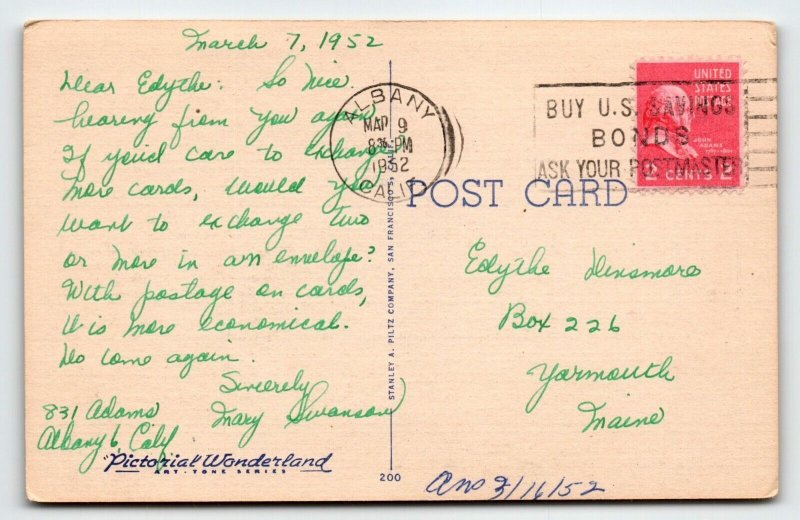 March 7, 1952
Dear Edythe: So nice
hearing from you again
If you'd care to exchange
more cards, would you
want to exchange two
or more in an envelope?
With postage on cards,
it is more economical.
Do come again.
Sincerely
Mary Swanson
831 Adams
Albany 6, Calif
"Pictorial Wonderland
ART-TONE SERIES
STANLEY A. PILTZ COMPANY, SAN FRANCISCO
200
ALBANY
MAR 9
PM
1952
CALIF
BUY U.S. SAVINGS
BONDS
ASK YOUR POSTMASTER
UNITED
STATES
JOHN
ADAMS
2 CENTS 2
POST CARD
Edythe Dinsmore
Box 226
Yarmouth
Maine
Ans 3/16/52